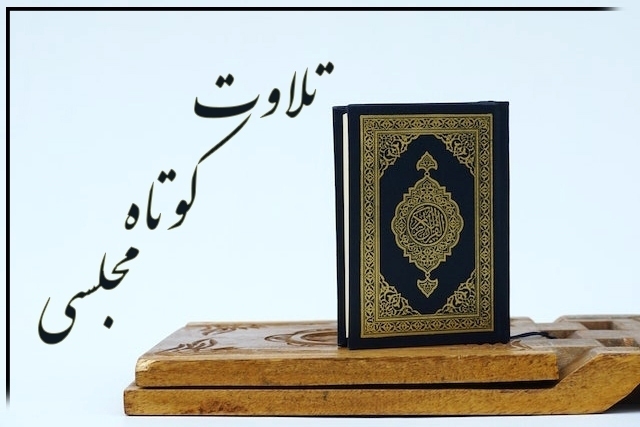 تلاوت
کوتاه
مجلسی